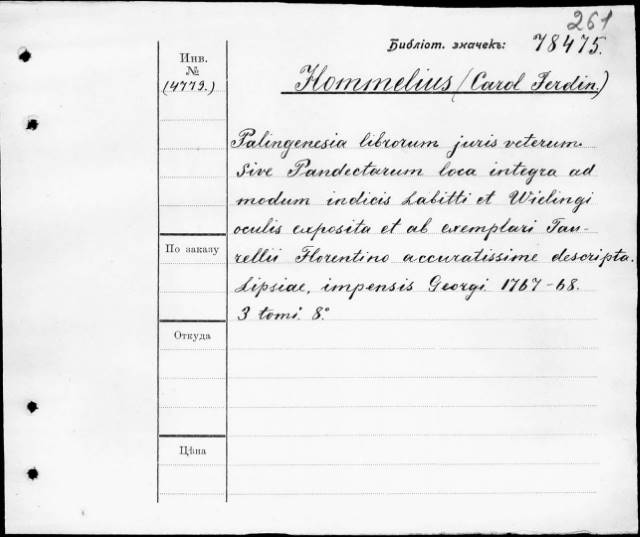 261
Библіот. значекъ: 78475.
Инв.
№
(4779.)
Hommelius (Carol Ferdin.)
Palingenesia librorum juris veterum
Sive Pandectarum loca integra ad
modum indicis Labitti et Wielingi
oculis exposita et ab exemplari Tau-
rellii Florentino accuratissime descripta.
Lipsiae, impensis Georgi 1767-68.
3 tomi. 8º
По заказу
Откуда
Цѣна